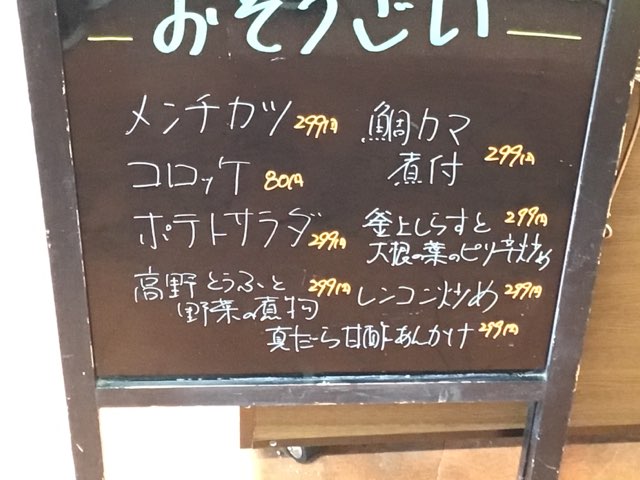 おそうざい
メンチカツ 299円
コロッケ 80円
ポテトサラダ 299円
高野とうふと 299円
野菜の煮物
鯛カマ
煮付 299円
釜上しらすと 299円
大根の葉のピリ辛炒め
レンコン炒め 299円
真だら甘酢あんかけ 299円